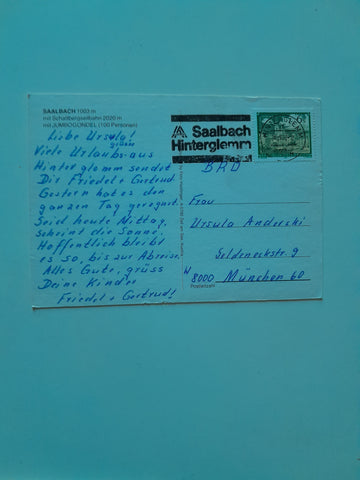 SAALBACH 1003 m
mit Schattbergseilbahn 2020 m
mit JUMBOGONDEL (100 Personen)
Liebe Ursula!
Viele Urlaubs- grüsse aus
Hinterglemm sendet
Dir Friedel + Gertrud
Gestern hat es den
ganzen Tag geregnet.
Seid heute Mittag,
scheint die Sonne.
Hoffentlich bleibt
es so, bis zur Abreise.
Alles Gute, grüss
Deine Kinder
Friedel + Gertrud!
Saalbach
Hinterglemm
6
BRD
Frau
Ursula Anderski
Seldeneckstr. 9
W
8000 München 60
Postleitzahl